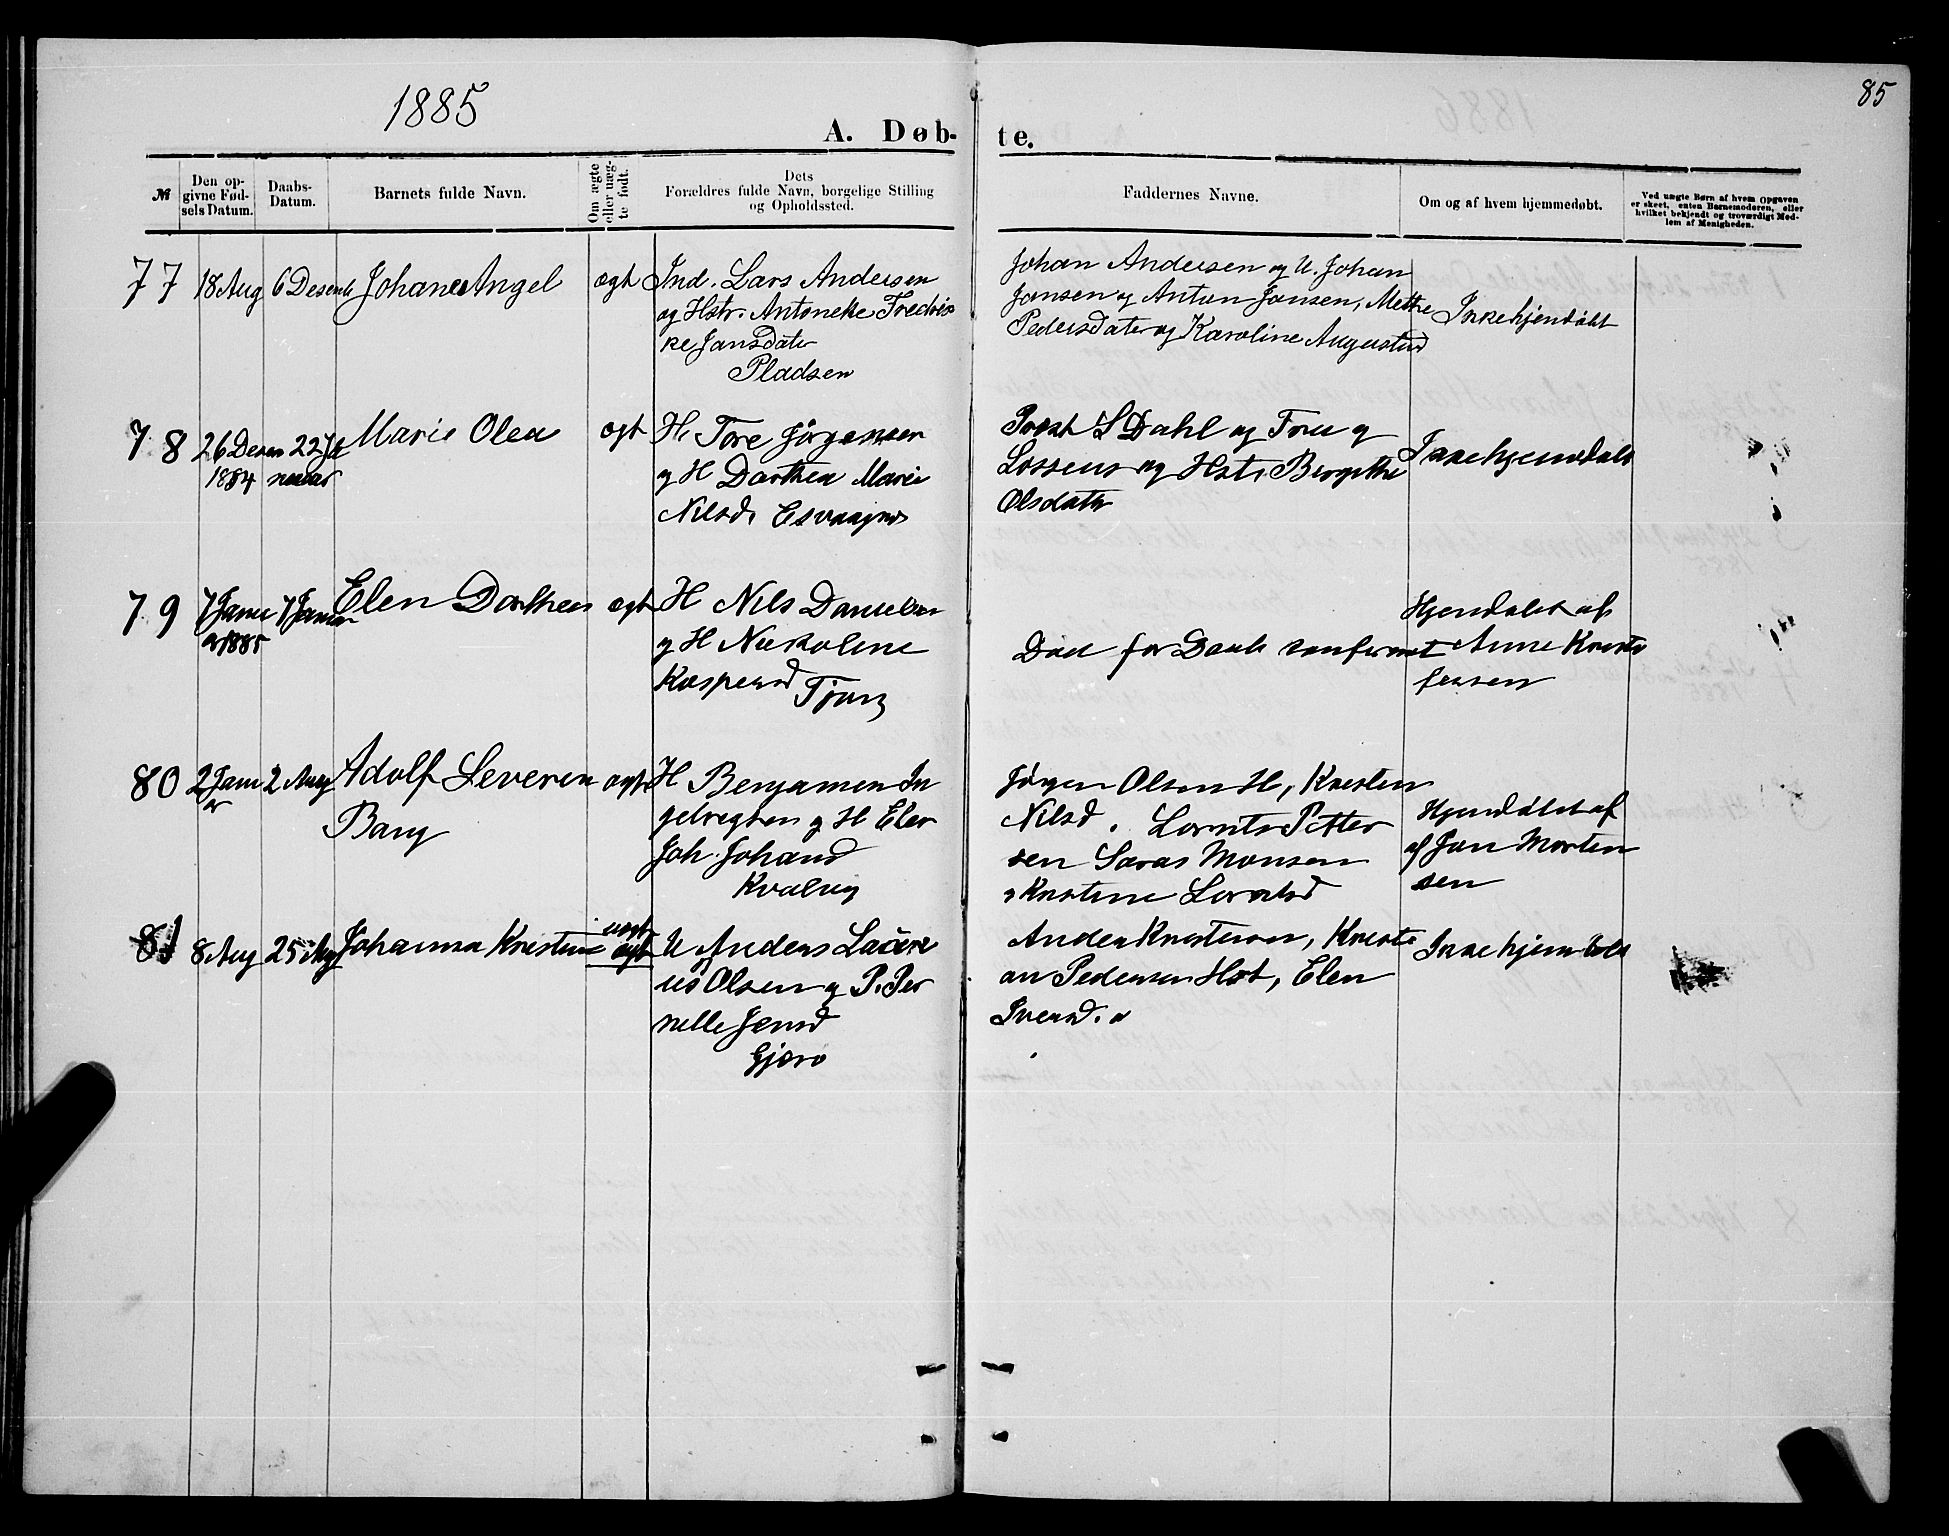 1885
85
A. Døb-
te.
№
Den op-
givne Fød-
sels Datum.
Daabs-
Datum.
Barnets fulde Navn.
Om ægte
eller uæg-
te født.
Dets
Forældres fulde Navn, borgelige Stilling
og Opholdssted.
Faddernes Navne.
Om og af hvem hjemmedøbt.
Ved uægte Børn af hvem Opgaven
er skeet, enten Barnemoderen, eller
hvilket bekjendt og troværdigt Med-
lem af Menigheden.
77
18 Aug
6 Desemb
Johan Angel
ægt
Ind. Lars Andersen
og Hstr. Antoneke Fredris
ke Jansdater
Pladsen
Johan Andersen og U. Johan
Jansen og Anton Jansen, Mette
Pedersdater og Karoline Augustud
Ikke hjemdøbt
78
26 Desem
1884
22 Ja
nuar
Marie Olea
ægt
H. Tore Jørgensen
og H Dorthea Marie
Nilsd.
Præst S Dahl og Frue og
og Hstr. Birgitte
Olsdatr
Ikke hjemdøbt
79
7 Janu
ar 1885
7 Januar
Elen Dorthea
ægt
H Nils Danielsen
og H Nikoline
Kaspersd
Død før Daab
Hjemdøbt af
Anne Kristo
fersen
80
2 Janu
ar
2 Aug
Adolf Severin
Bang
ægt
H Benjamen In
gebregtsen og H Elen
Joh. Johansd
Kvalvig
Jørgen Olsen H, Kristen
Nilsd. Lorents Petter
sen Saras Monsen
og Kristine Lorntsd
Hjemdøbt af
af Jan Morten
sen
81
8 Aug
25 Aug
Johanna Kristine
uægt
ægt
U Anders
Olsen og P. Per
nelle Jensd
Gjærø
Anders Kristensen, Kristi
an Pedersen Hst, Elen
Iversd.
Ikke hjemdøbt